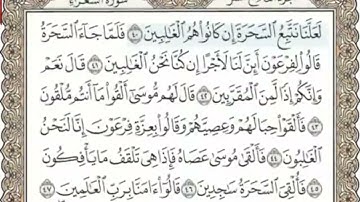 سورة الشعراء
لَعَلَّنَا نَتَّبِعُ ٱلسَّحَرَةَ إِن كَانُوا۟ هُمُ ٱلْغَٰلِبِينَ ٤٠ فَلَمَّا جَآءَ ٱلسَّحَرَةُ
قَالُوا۟ لِفِرْعَوْنَ أَئِنَّ لَنَا لَأَجْرًا إِن كُنَّا نَحْنُ ٱلْغَٰلِبِينَ ٤١ قَالَ نَعَمْ
وَإِنَّكُمْ إِذًا لَّمِنَ ٱلْمُقَرَّبِينَ ٤٢ قَالَ لَهُم مُّوسَىٰٓ أَلْقُوا۟ مَآ أَنتُم مُّلْقُونَ
٤٣ فَأَلْقَوْا۟ حِبَالَهُمْ وَعِصِيَّهُمْ وَقَالُوا۟ بِعِزَّةِ فِرْعَوْنَ إِنَّا لَنَحْنُ
ٱلْغَٰلِبُونَ ٤٤ فَأَلْقَىٰ مُوسَىٰ عَصَاهُ فَإِذَا هِىَ تَلْقَفُ مَا يَأْفِكُونَ
٤٥ فَأُلْقِىَ ٱلسَّحَرَةُ سَٰجِدِينَ ٤٦ قَالُوٓا۟ ءَامَنَّا بِرَبِّ ٱلْعَٰلَمِينَ ٤٧